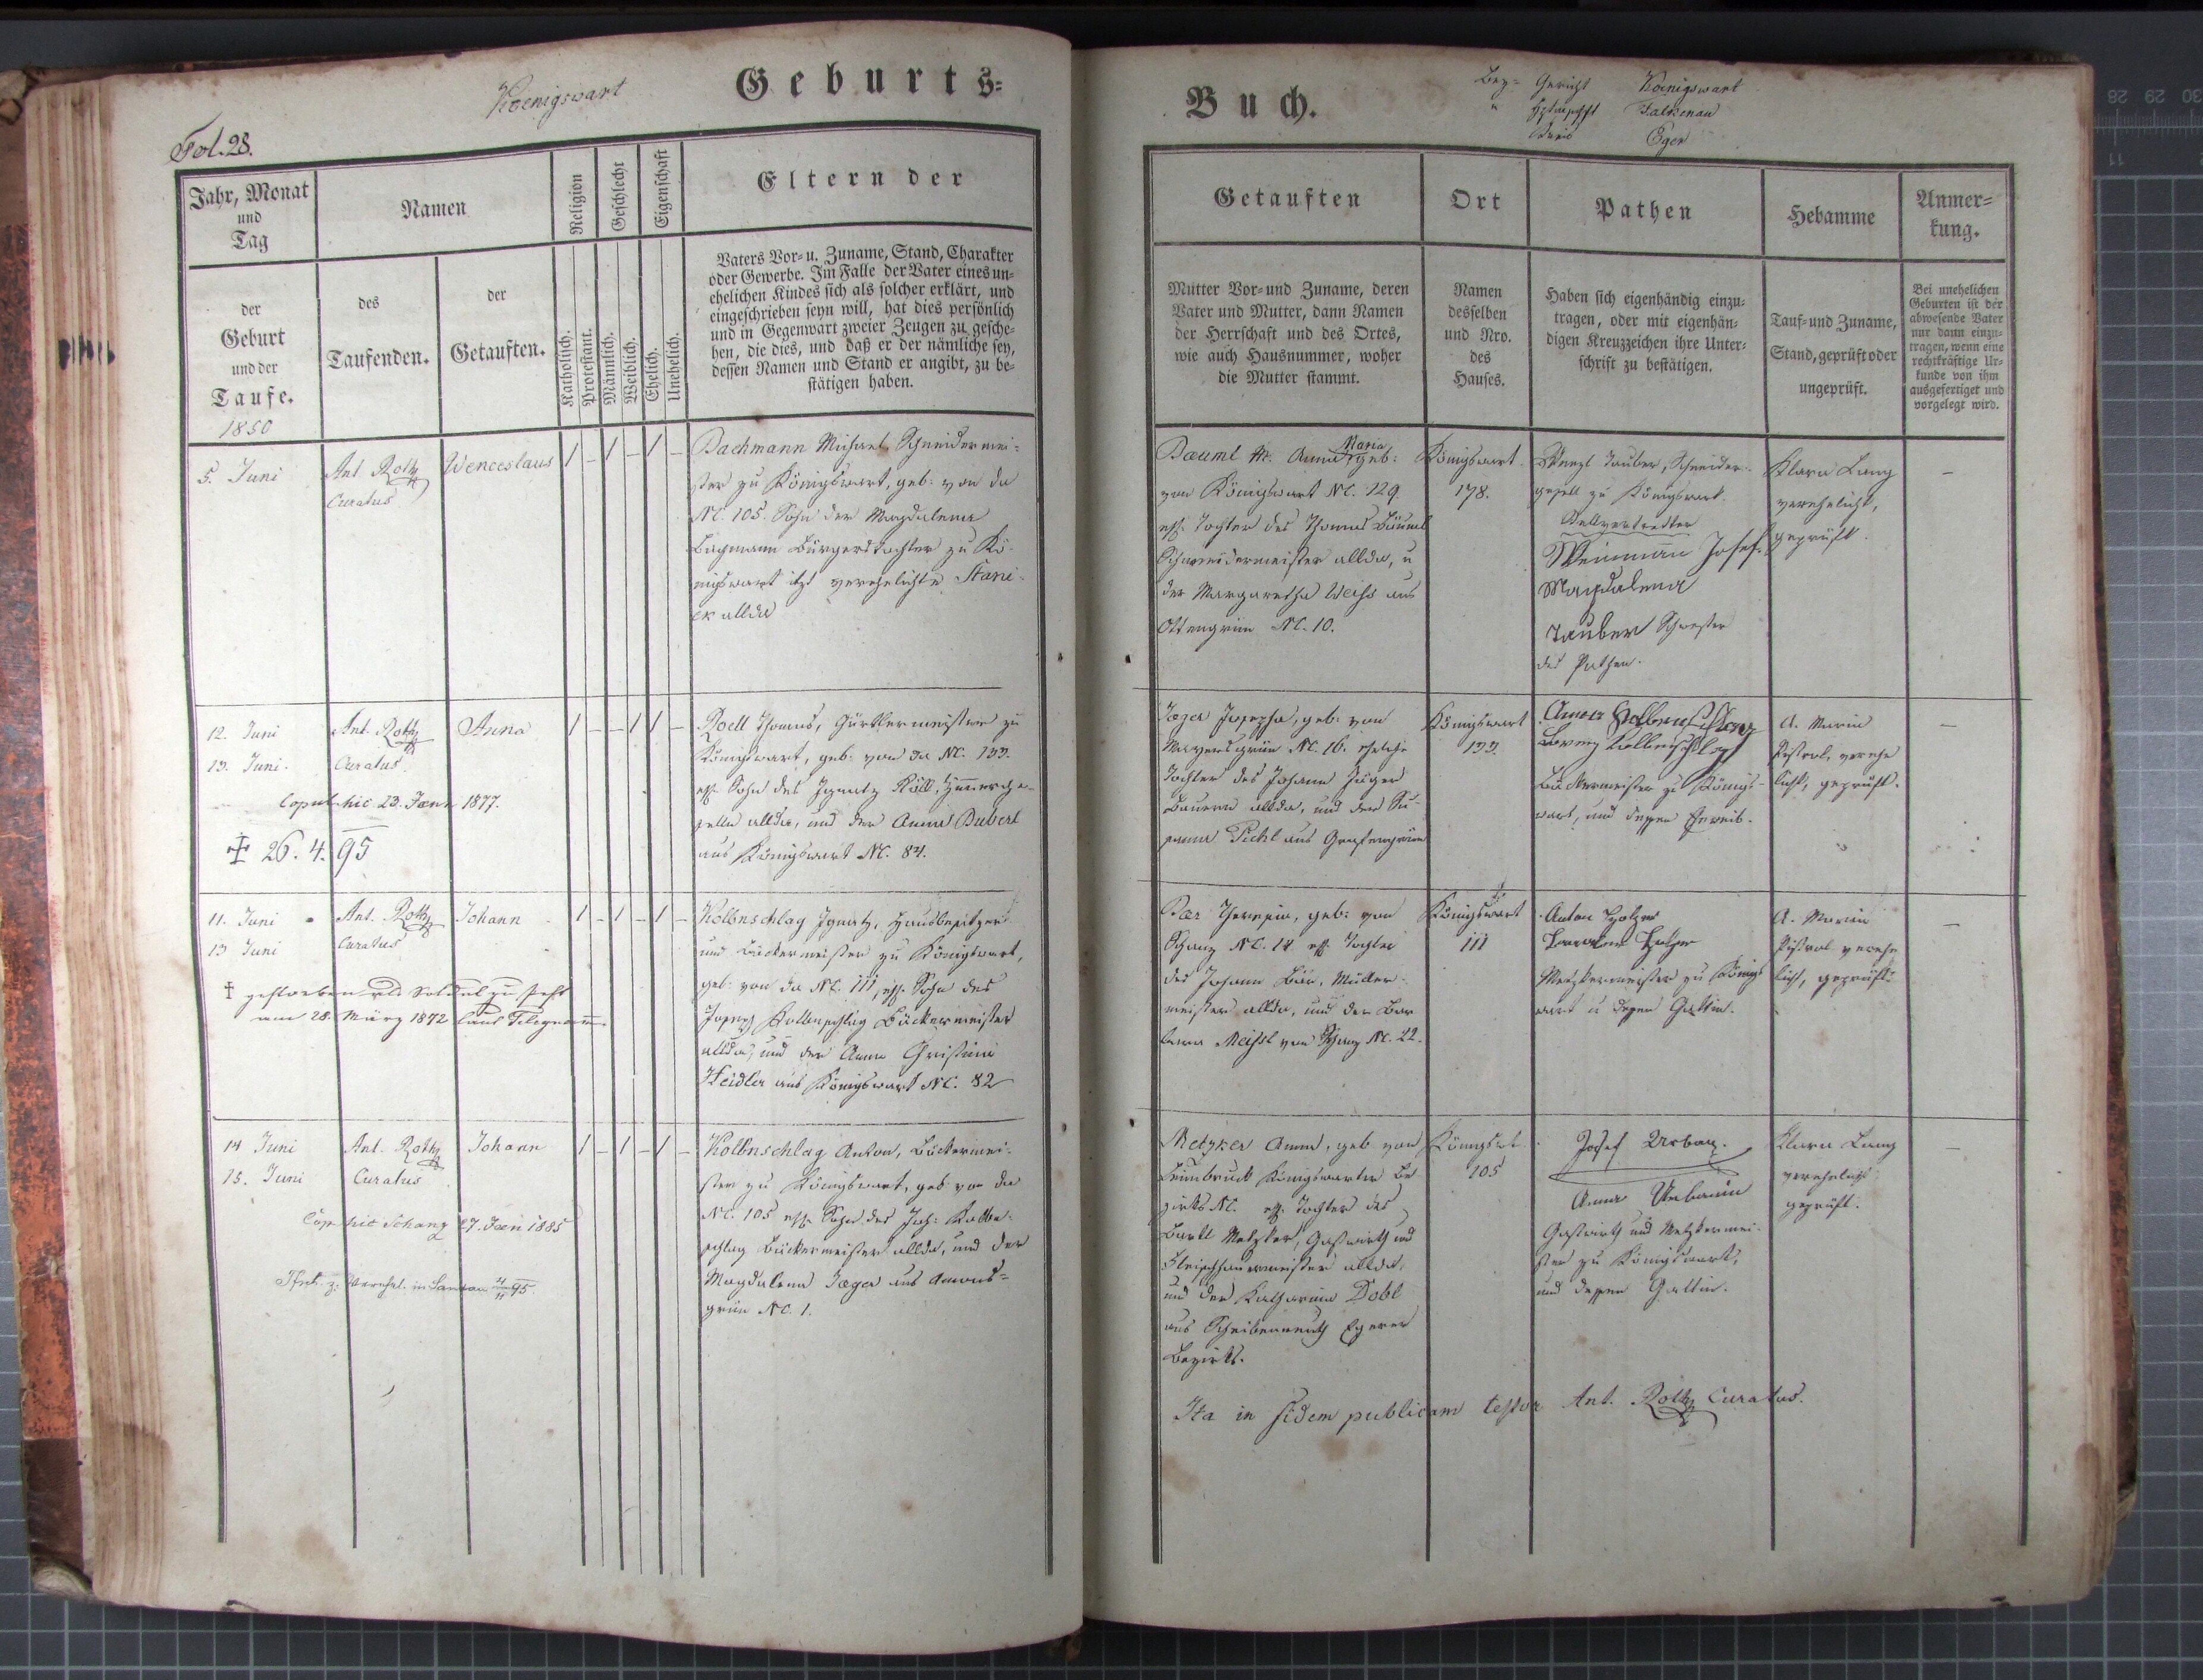 Koenigswart
Geburts=
Fol. 28.
Jahr, Monat
und
Tag
der
Geburt
und der
Taufe.
1850
Namen
des
Taufenden.
der
Getauften.
Religion
Katholisch.
Protestant.
Geschlecht
Männlich.
Weiblich.
Eigenschaft
Ehelich.
Unehelich.
Eltern der
Vaters Vor= u. Zuname, Stand, Charakter
oder Gewerbe. Im Falle der Vater eines un=
ehelichen Kindes sich als solcher erklärt, und
eingeschrieben seyn will, hat dies persönlich
und in Gegenwart zweier Zeugen zu gesche=
hen, die dies, und daß er der nämliche sey,
dessen Namen und Stand er angibt, zu be=
stätigen haben.
5. Juni
Ant. Roth
Curatus
Wenceslaus
1 – 1 – 1 –
Bachmann Michael, Schneidermei=
ster zu Königswart, geb: von da
NC. 105. Sohn der Magdalena
Bachmann Bürgerstochter zu Kö=
nigswart itzt verehelichte
allda
12. Juni
13. Juni.
Ant. Roth
Curatus.
Anna
1 – – 1 1 –
Roell Thomas, Gürtlermeister zu
Königswart, geb: von da NC. 133.
eh. Sohn des Ignatz Röll,
allda, und der Anna Buberl
aus Königswart NC. 84.
Copul. hic 23. Jann 1877.
† 26. 4. 95
11. Juni
13 Juni
Ant. Roth
Curatus
Johann
1 – 1 – 1 –
Kolbnschlag Ignatz, Hausbesitzer
und Bäckermeister zu Königswart,
geb: von da NC. 111, eh. Sohn des
Joseph Kolbnschlag Bäckermeister
allda, und der Anna Christina
Heidler aus Königswart NC. 82
† gestorben als Soldat zu Pesth
am 28. März 1872 laut Telegramm.
14 Juni
15. Juni
Ant. Roth
Curatus
Johann
1 – 1 – 1 –
Kolbnschlag Anton, Bäckermei=
ster zu Königswart, geb von da
NC. 105 eh. Sohn des Jos: Kolbn=
schlag Bäckermeister allda, und der
Magdalena Jaeger aus Amons=
grün NC. 1.
Cop hic Schanz 27. Jaen 1885
z: Verehel. in Sandau 95.
Buch.
Bez= Gericht Koenigswart
" Falkenau
Kreis Eger
Getauften
Mutter Vor= und Zuname, deren
Vater und Mutter, dann Namen
der Herrschaft und des Ortes,
wie auch Hausnummer, woher
die Mutter stammt.
Ort
Namen
desselben
und Nro.
des
Hauses.
Pathen
Haben sich eigenhändig einzu=
tragen, oder mit eigenhän=
digen Kreuzzeichen ihre Unter=
schrift zu bestätigen.
Hebamme
Tauf= und Zuname,
Stand, geprüft oder
ungeprüft.
Anmer=
kung.
Bei unehelichen
Geburten ist der
abwesende Vater
nur dann einzu=
tragen, wenn eine
rechtkräftige Ur=
kunde von ihm
ausgefertiget und
vorgelegt wird.
Bæuml Anna Maria geb:
von Königswart NC. 129.
eh. Tochter des Thomas Bäuml
Schneidermeister allda, u
der Margaretha Weihs aus
Ottengrün NC. 10.
Königswart
178.
Wenzl Tauber, Schneider=
gesell zu Königswart.
Stellvertretter
Weinmann Josef.
Magdalena
Tauber Schwester
des Pathen.
Klara Lang
verehelicht,
geprüft.
–
Jæger Josepha, geb: von
Mayersgrün NC. 16. eheliche
Tochter des Johann Jäger
Bauern allda, und der Su=
sanna Pichl aus Grafengrün
Königswart
133.
Anna Kolbenschlag
Lorenz Kolbenschlag
Bäckermeister zu Königs=
wart, und dessen Eheweib.
A. Maria
verehe
licht, geprüft.
–
Bær Theresia, geb: von
Schanz NC. 14 eh. Tochter
des Johann Bär, Müller=
meister allda, und der Bar
bara Meissl von Schanz NC. 22.
Königswart
111
Anton Holzer
Holzer
Metzkermeister zu Königs
wart u dessen Gattin.
A. Maria
verehe
licht, geprüft.
–
Metzker Anna, geb von
Leimbruck Königswarter Be
zirks NC. eh. Tochter des
Bartl Metzker, Gastwirth und
Fleischhauermeister allda,
und der Katharina Dobl
aus Scheibenreuth Egerer
Bezirks.
Königswt.
105
Josef Urban.
Anna Urbanin
Gastwirth und Metzkermei=
ster zu Königswart,
und dessen Gattin.
Klara Lang
verehelicht
geprüft.
–
Ita in fidem publicam testor Ant. Roth Curatus.